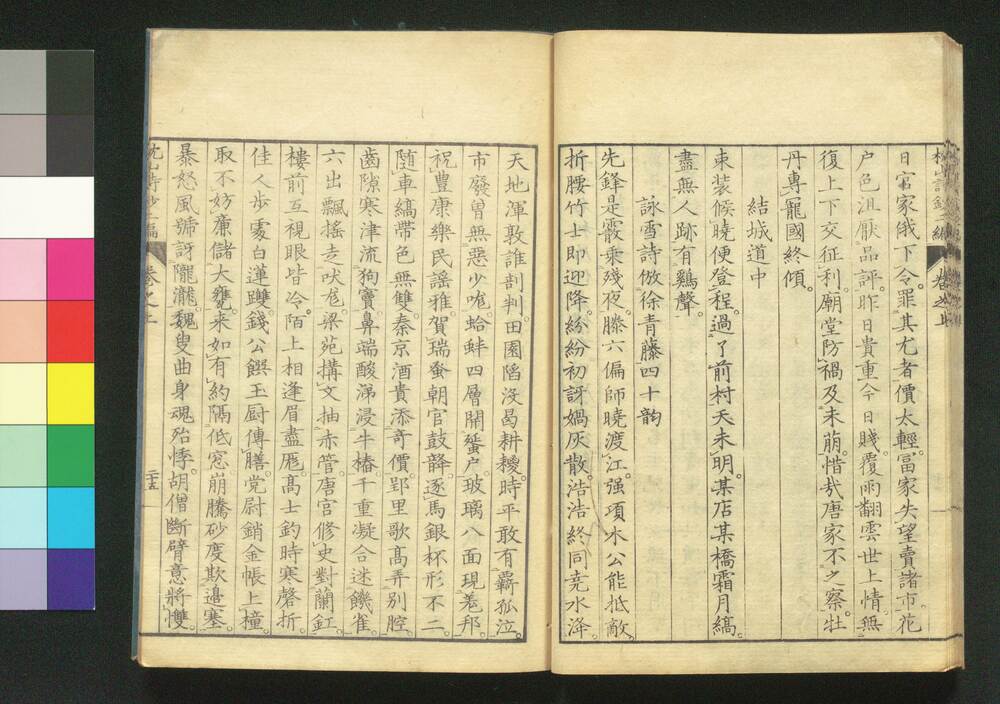 日官家俄下令罪其尤者價太輕富家失望賣諸市花
戶色沮厭品評昨日貴重今日賤覆雨翻雲世上情無
復上下交征利廟堂防禍及未萠惜哉唐家不之察牡
丹專寵國終傾
結城道中
束装候曉便登程過了前村天未明某店某橋霜月縞
盡無人跡有鷄聲
詠雪詩倣徐青藤四十韵
先鋒是霰乘殘夜滕六偏師曉渡江强項木公能抵敵
折腰竹士即迎降紛紛初訝媧灰散浩浩終同堯水洚
天地渾敦誰剖判田園陷没曷耕耰時平敢有覇孤泣
市廢曽無惡少唬蛤蚌四層開蜃户玻瓈八面現羗邦
祝豊康樂民謡雅賀瑞夤朝官鼓韸逐馬銀杯形不二
隨車縞帶色無雙秦京酒貴添竒價郢里歌髙弄別腔
齒隙寒津流狗竇鼻端酸涕浸牛樁千重凝合迷饑雀
六出飄揺走吠尨梁苑搆文抽赤管唐宫修史對蘭釭
樓前互視眼皆冷陌上相逢眉盡厖髙士釣時寒磬折
佳人歩處白蓮躞錢公饌玉厨傳膳党尉銷金帳上橦
取不妨廉儲大甕来如有約隔低窓崩騰砂度欺邉塞
暴怒風號訝隴瀧魏叟曲身魂殆悸胡僧斷臂意將慺
枕山詩鈔二編
卷之上
二十五